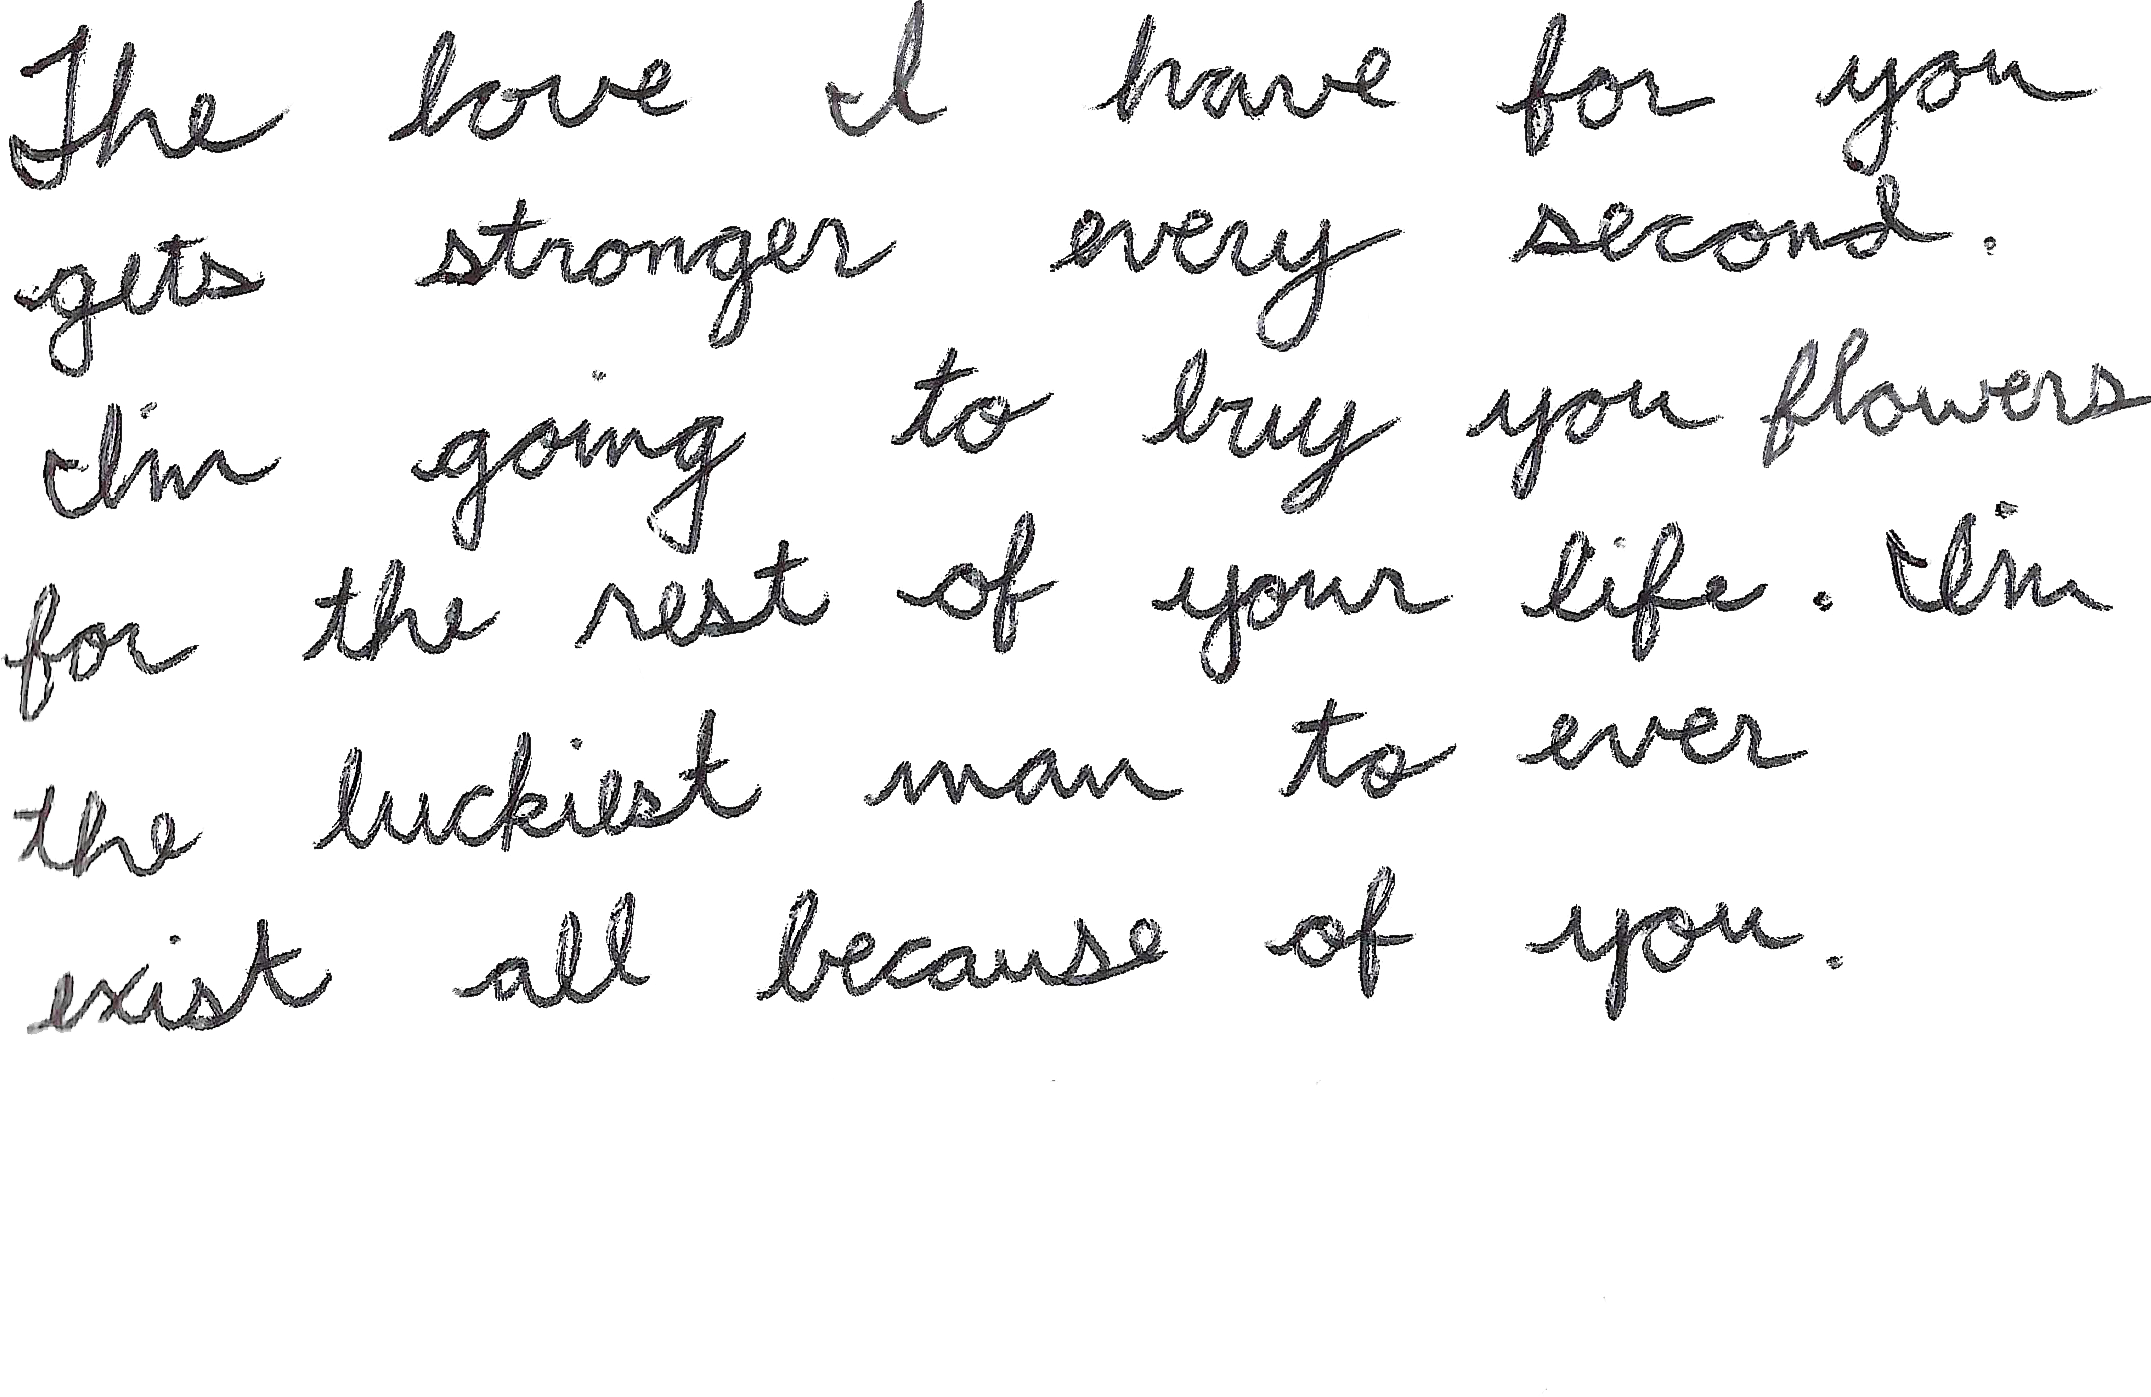 The love I have for you
gets stronger every second.
I'm going to buy you flowers
for the rest of your life. I'm
the luckiest man to ever
exist all because of you.